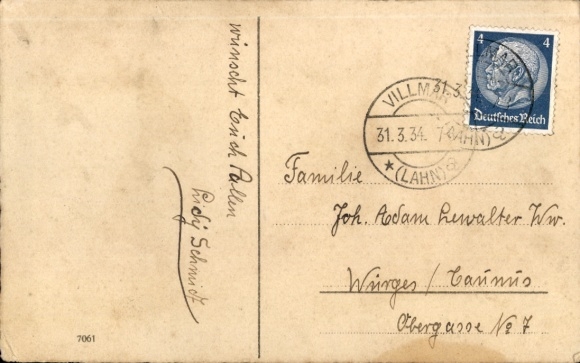 wünscht Euch Allen
Lidy Schmidt
7061
4 4
Deutsches Reich
VILLMAR
31.3.34. 7
(LAHN) a
Familie
Joh. Adam Lewalter Ww.
Würges / Taunus
Obergasse No 7